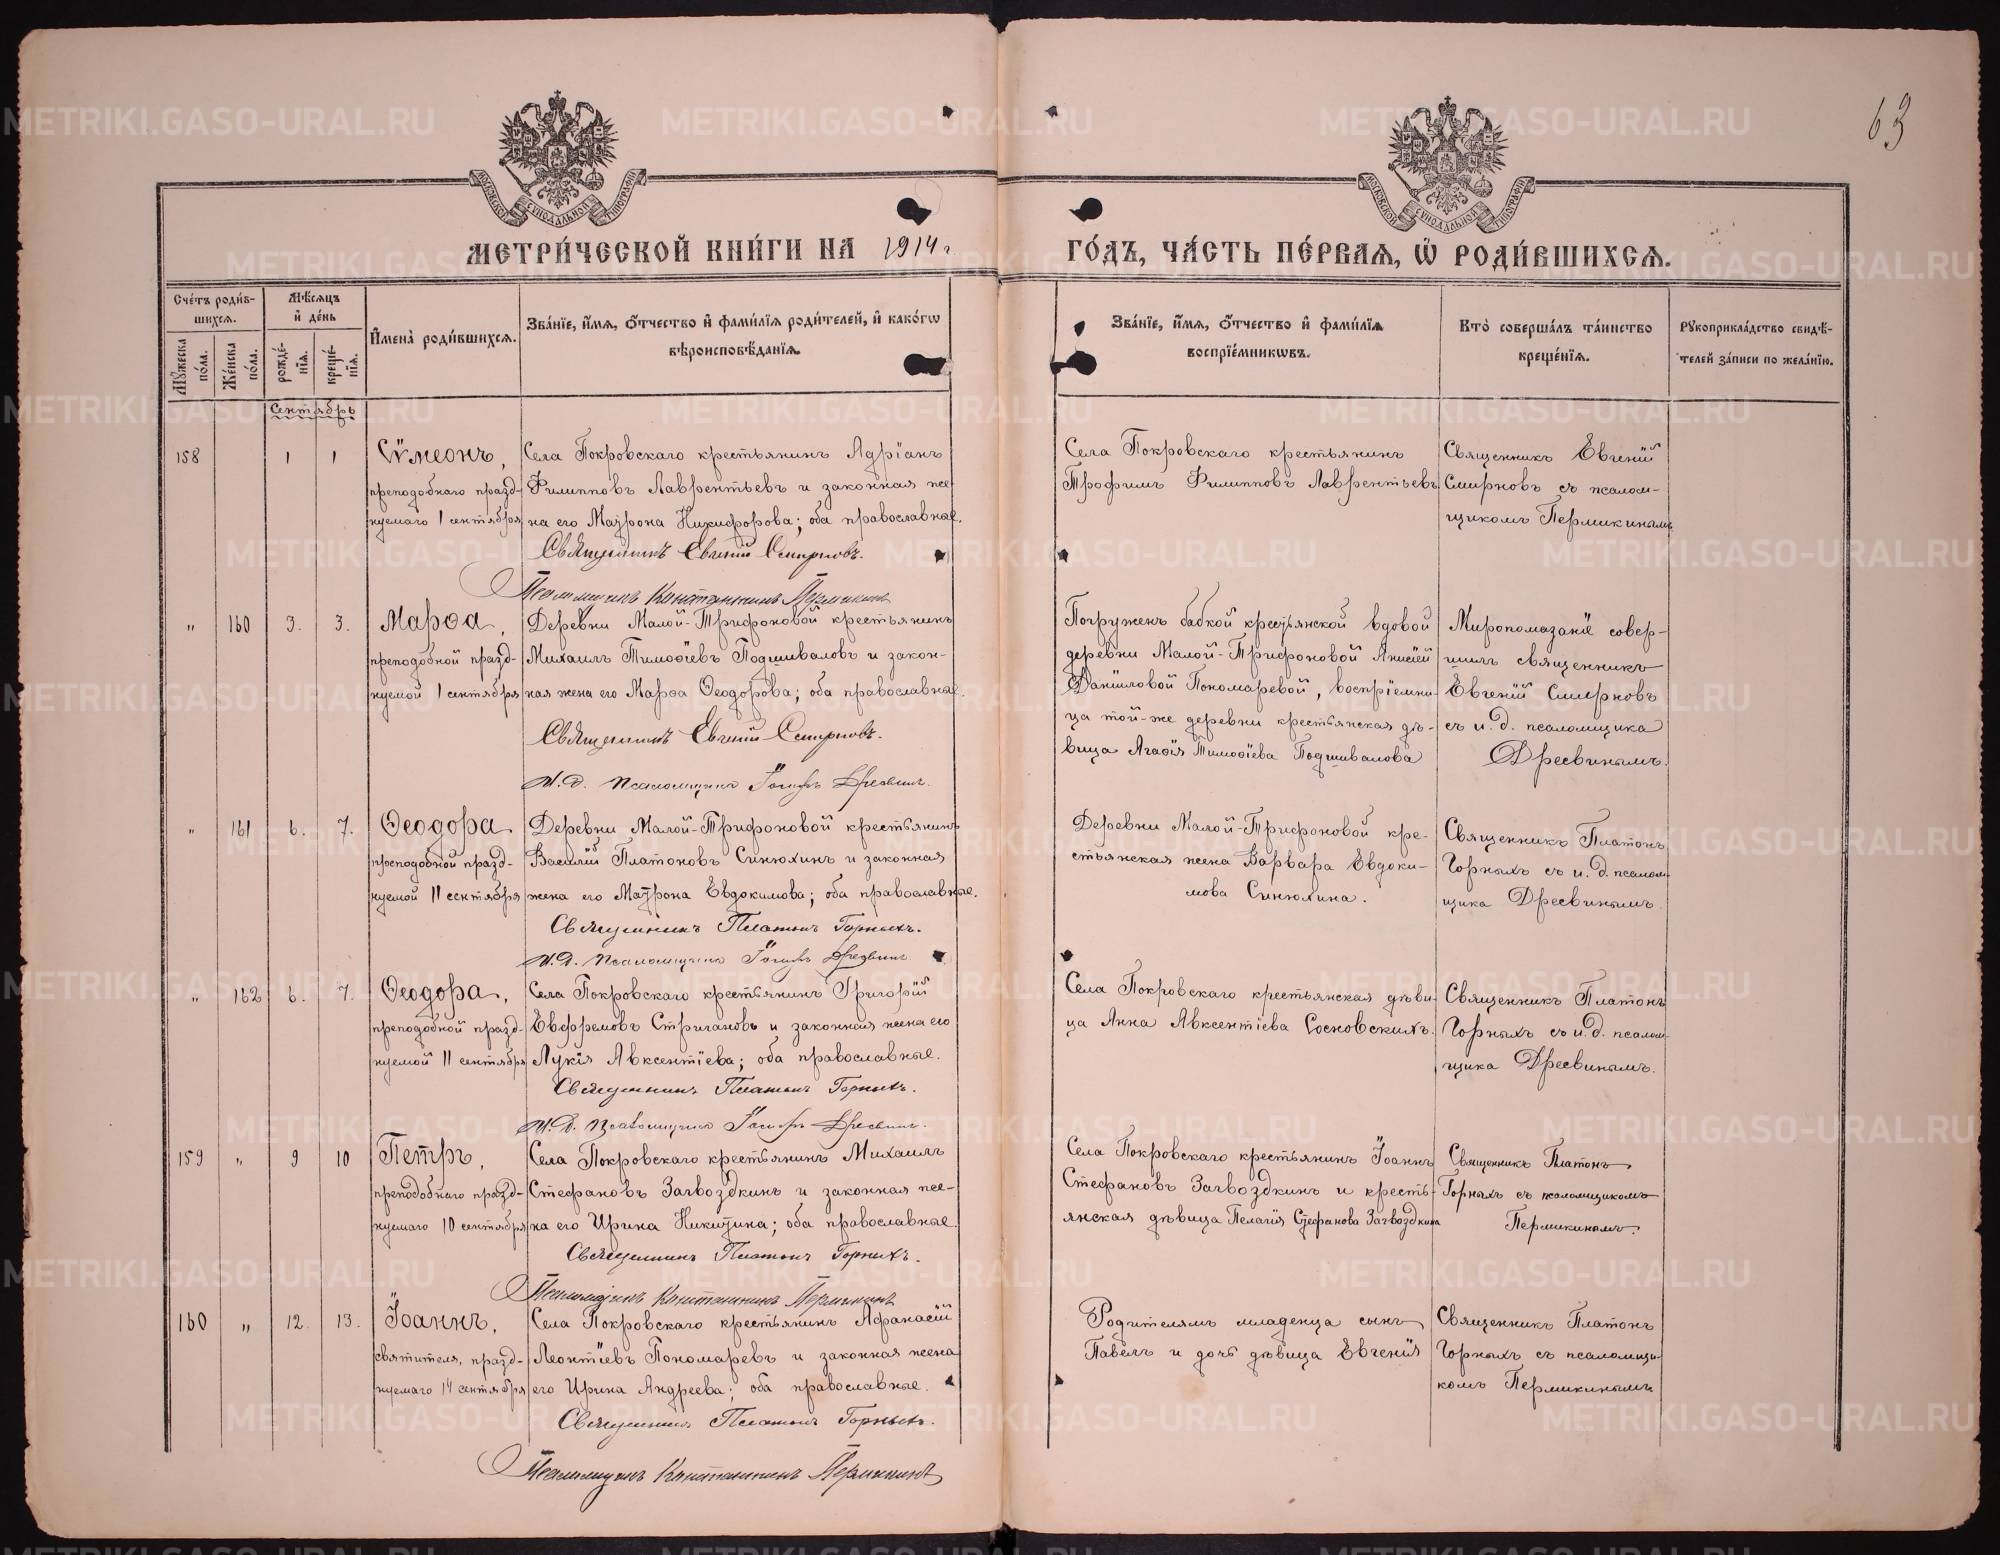 63
МОСКОВСКОЙ СѴНОДАЛЬНОЙ ТИПОГРАФІИ
МОСКОВСКОЙ СѴНОДАЛЬНОЙ ТИПОГРАФІИ
МЕТРИ́ЧЕСКОЙ КНИ́ГИ НА 1914 г. ГО́ДЪ, ЧА́СТЬ ПЕ́РВАѦ, Ѡ РОДИ́ВШИХСѦ.
Сче́тъ роди́в-
шихсѧ.
Мꙋ́жеска по́ла.
Же́нска по́ла.
Мѣ́сѧцъ
и҆ де́нь
рожде́-
нїѧ.
креще́-
нїѧ.
И҆мена̀ роди́вшихсѧ.
Зва́нїе, и҆́мѧ, ѻ҆́тчество и҆ фами́лїѧ роди́телей, и҆ како́гѡ
вѣроисповѣ́данїѧ.
Зва́нїе, и҆́мѧ, ѻ҆́тчество и҆ фами́лїѧ
воспрїе́мникѡвъ.
Кто̀ соверша́лъ та́инство
креще́нїѧ.
Рꙋкоприкла́дство свидѣ́-
телей за́писи по жела́нїю.
Сентябрь
158 1 1
Сѷмеонъ,
преподобнаго празд-
нуемаго 1 сентября
Села Покровскаго крестьянинъ Адріанъ
Филипповъ Лаврентьевъ и законная же-
на его Маѵрона Никифорова; оба православные.
Священникъ Евгеній Смирновъ.
Псаломщикъ Константинъ Пермикинъ
Села Покровскаго крестьянинъ
Трофимъ Филипповъ Лаврентьевъ
Священникъ Евгеній
Смирновъ съ псалом-
щикомъ Пермикинымъ
„ 160 3. 3.
Марѳа,
преподобной празд-
нуемой 1 сентября
Деревни Малой-Трифоновой крестьянинъ
Михаилъ Тимоѳіевъ Подшиваловъ и закон-
ная жена его Марѳа Ѳеодорова; оба православные.
Священникъ Евгеній Смирновъ.
И.д. Псаломщика Іосифъ Дресвинъ.
Погруженъ бабкой крестьянской вдовой
деревни Малой-Трифоновой Анисіей
Даніиловой Пономаревой, воспріемни-
ца той-же деревни крестьянская дѣ-
вица Агаѳія Тимоѳіева Подшивалова
Миропомазаніе совер-
шилъ священникъ
Евгеній Смирновъ
съ и.д. псаломщика
Дресвинымъ.
„ 161 6. 7.
Ѳеодора
преподобной празд-
нуемой 11 сентября
Деревни Малой-Трифоновой крестьянинъ
Василій Платоновъ Синюхинъ и законная
жена его Маѵрона Евдокимова; оба православные.
Священникъ Платонъ Горныхъ.
И.д. Псаломщика Іосифъ Дресвинъ.
Деревни Малой-Трифоновой кре-
стьянская жена Варвара Евдоки-
мова Синюхина.
Священникъ Платонъ
Горныхъ съ и.д. псалом-
щика Дресвинымъ.
„ 162 6. 7.
Ѳеодора,
преподобной празд-
нуемой 11 сентября
Села Покровскаго крестьянинъ Григорій
Евфремовъ Стригановъ и законная жена его
Лукія Авксентіева; оба православные.
Священникъ Платонъ Горныхъ.
И.д. Псаломщика Іосифъ Дресвинъ.
Села Покровскаго крестьянская дѣви-
ца Анна Авксентіева Сосновскихъ.
Священникъ Платонъ
Горныхъ съ и.д. псалом-
щика Дресвинымъ.
159 „ 9 10
Петръ,
преподобнаго празд-
нуемаго 10 сентября
Села Покровскаго крестьянинъ Михаилъ
Стефановъ Загвоздкинъ и законная же-
на его Ирина Никитина; оба православные.
Священникъ Платонъ Горныхъ.
Псаломщикъ Константинъ Пермикинъ
Села Покровскаго крестьянинъ Іоаннъ
Стефановъ Загвоздкинъ и кресть-
янская дѣвица Пелагія Стефанова Загвоздкина
Священникъ Платонъ
Горныхъ съ псаломщикомъ
Пермикинымъ.
160 „ 12. 13.
Іоаннъ,
святителя, празд-
нуемаго 14 сентября
Села Покровскаго крестьянинъ Афанасій
Леонтіевъ Пономаревъ и законная жена
его Ирина Андреева; оба православные.
Священникъ Платонъ Горныхъ.
Псаломщикъ Константинъ Пермикинъ
Родителямъ младенца сынъ
Павелъ и дочь дѣвица Евгенія
Священникъ Платонъ
Горныхъ съ псаломщи-
комъ Пермикинымъ
METRIKI.GASO-URAL.RU